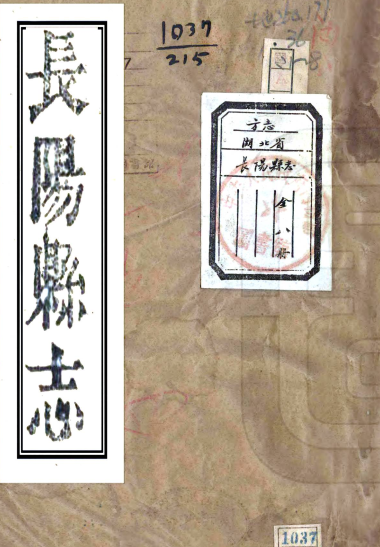 長陽縣志
1037
215
方志
湖北省
長陽縣志
全八冊
1037